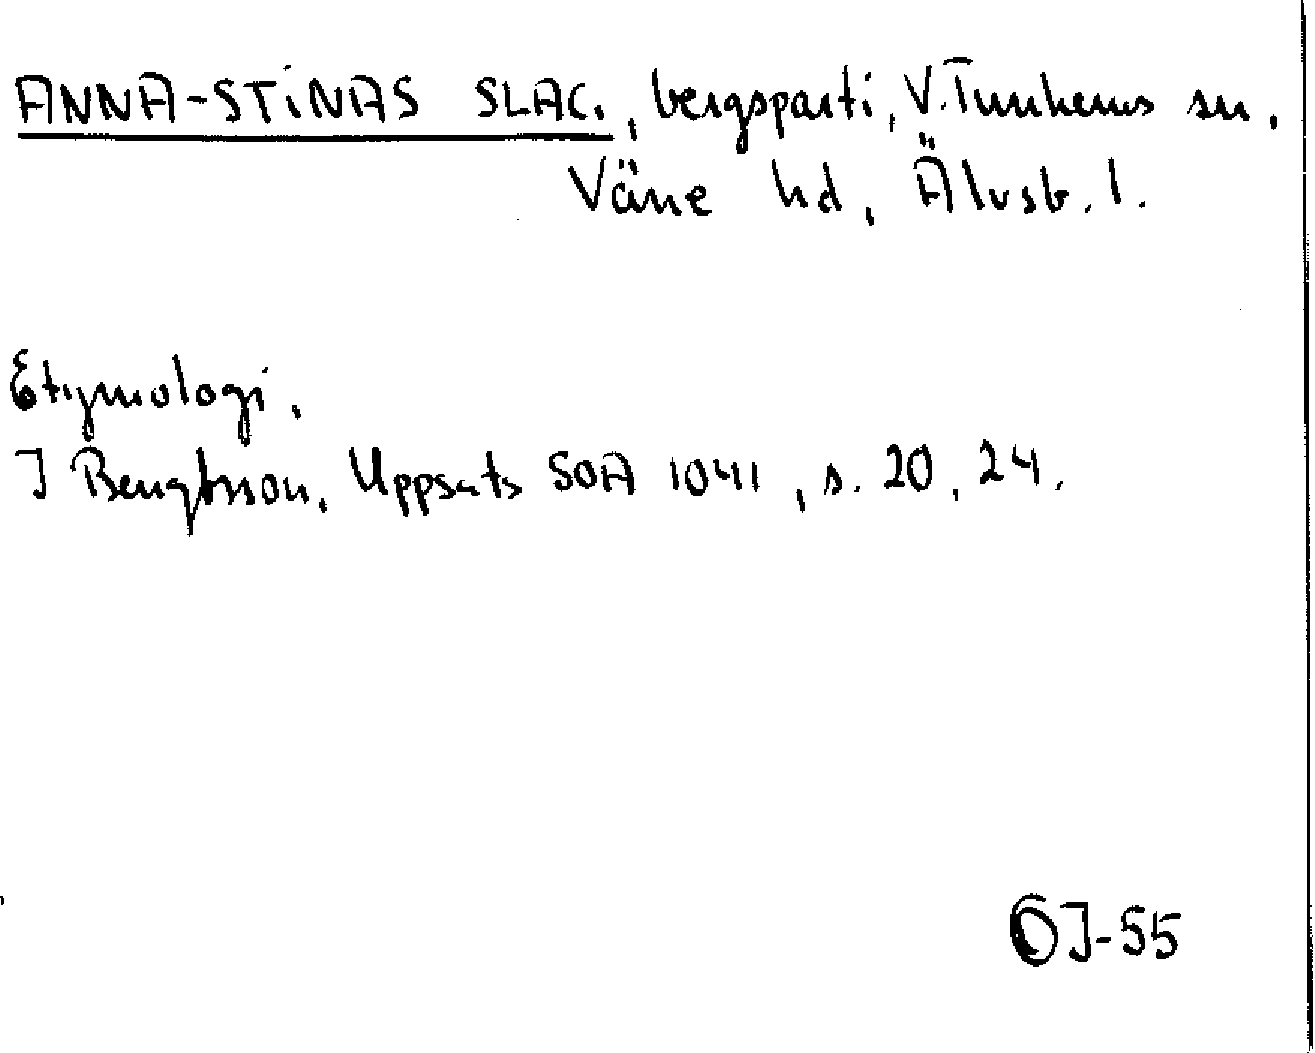 ANNA-STINAS SLAC., bergsparti, V. Tunhems sn,
Väne hd, Älvsb. l.
Etymologi.
I Bengtsson, Uppsats SOA 1041, s. 20, 24.
OJ-55